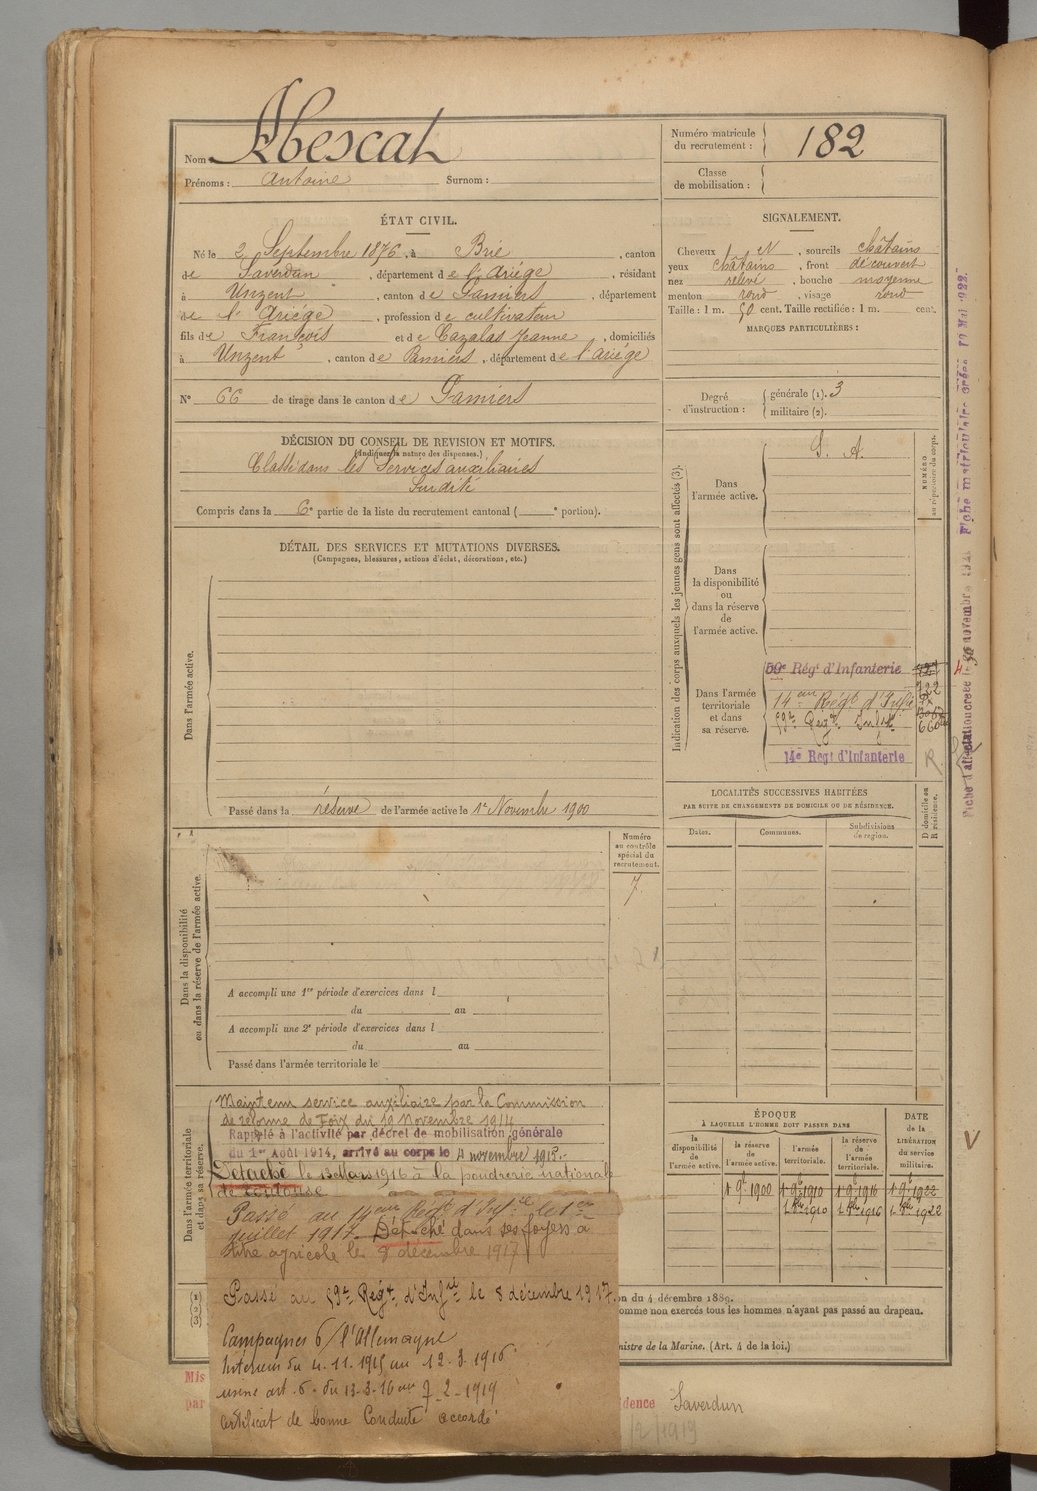 Nom Abescat
Prénoms : Antoine Surnom :
Numéro matricule
du recrutement : 182
Classe
de mobilisation :
ÉTAT CIVIL.
Né le 2 Septembre 1876, à Brie, canton
de Saverdun, département de l'Ariège, résidant
à Unzent, canton de Pamiers, département
de l'Ariège, profession de cultivateur
fils de François et de Cazalas Jeanne, domiciliés
à Unzent, canton de Pamiers, département de l'ariége
N° 66 de tirage dans le canton de Pamiers
SIGNALEMENT.
Cheveux N, sourcils châtains
yeux châtains, front découvert
nez relevé, bouche moyenne
menton rond, visage rond
Taille : 1 m. 50 cent. Taille rectifiée : 1 m. cent.
MARQUES PARTICULIÈRES :
Degré
d'instruction :
générale (1). 3
militaire (2).
DÉCISION DU CONSEIL DE REVISION ET MOTIFS.
(Indiquer la nature des dispenses.)
Classé dans les Services auxiliaires
Surdité
Compris dans la 6e partie de la liste du recrutement cantonal ( e portion).
DÉTAIL DES SERVICES ET MUTATIONS DIVERSES.
(Campagnes, blessures, actions d'éclat, décorations, etc.)
Dans l'armée active.
Passé dans la réserve de l'armée active le 1er Novembre 1900
Indication des corps auxquels les jeunes gens sont affectés (3).
Dans
l'armée active.
S. A.
NUMÉRO
au répertoire du corps.
Dans
la disponibilité
ou
dans la réserve
de
l'armée active.
Dans l'armée
territoriale
et dans
sa réserve.
59e Régt d'Infanterie
722
14eme Regt d'Infie
59e Regt Infie
14e Regt d'Infanterie
R
Fiche matriculaire créée 19 Mai 1922.
LOCALITÉS SUCCESSIVES HABITÉES
PAR SUITE DE CHANGEMENTS DE DOMICILE OU DE RÉSIDENCE.
Dates.
Communes.
Subdivisions
de region.
D domicile ou
R résidence.
Numéro
au contrôle
spécial du
recrutement.
7.
Dans la disponibilité
ou dans la réserve de l'armée active.
A accompli une 1re période d'exercices dans l
du au
A accompli une 2e période d'exercices dans l
du au
Passé dans l'armée territoriale le
Dans l'armée territoriale
et dans sa réserve.
Maintenu service auxiliaire par la Commission
de réforme de Foix du 19 Novembre 1914
Rappelé à l'activité par décret de mobilisation générale
du 1er Août 1914, arrivé au corps le 4 novembre 1915.-
Détaché le 13 Mars 1916 à la poudrerie nationale
de Toulouse
Passé au 14eme Regt d'Infie le 1er
juillet 1917. Détaché dans ses foyers à
titre agricole le 8 décembre 1917
Passé au 59e Régt d'Infrie le 8 décembre 1917.
Campagnes c/ l'Allemagne
Intérieur du 4.11.1915 au 12.3.1916
usine art. 6. du 13-3-16 au 7-2-1919
certificat de bonne Conduite accordé
ÉPOQUE
À LAQUELLE L'HOMME DOIT PASSER DANS
la
disponibilité
de
l'armée active.
la réserve
de
l'armée active.
l'armée
territoriale.
la réserve
de
l'armée
territoriale.
DATE
de la
LIBÉRATION
du service
militaire.
1 9e 1900
1 9e 1910
1 9e 1916
1 9e 1922
1910
1916
1922
V
(1)
(2)
(3)
on du 4 décembre 1889.
omme non exercés tous les hommes n'ayant pas passé au drapeau.
nistre de la Marine. (Art. 4 de la loi.)
Mis
par
idence Saverdun
/2/1919